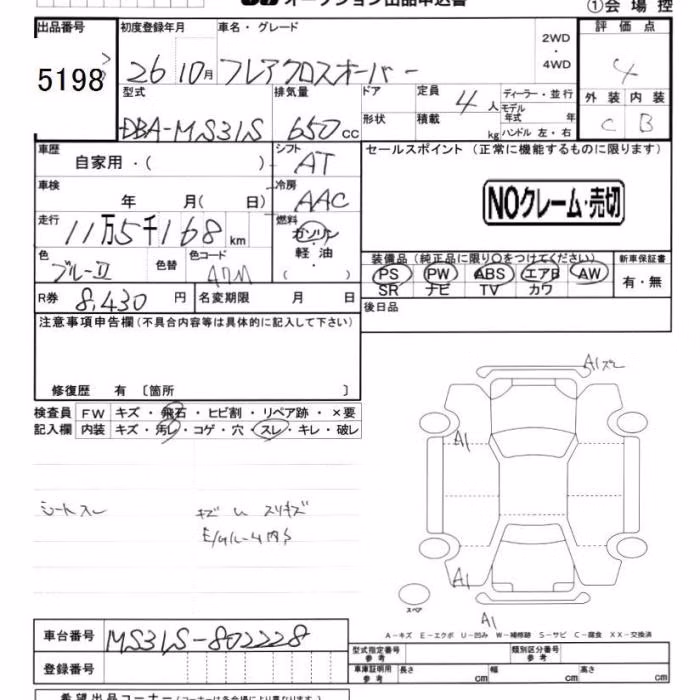 オークション出品申込書
①会場控
出品番号 初度登録年月 車名・グレード 2WD・4WD 評価点
5198 26 10月 フレアクロスオーバー 4
型式 排気量 ドア 定員 ディーラー・並行 外装 内装
DBA-MS31S 650cc 形状 積載 4人 kg モデル年式 年 ハンドル 左・右 C B
車歴 自家用・( ) シフト AT セールスポイント (正常に機能するものに限ります)
車検 年 月( 日) 冷房 AAC
NOクレーム・売切
走行 11万5千168km 燃料 ガソリン・軽油・( )
装備品 (純正品に限り○をつけてください) 新車保証書
色 ブルーⅡ 色替 色コード
PS PW ABS エアB AW 有・無
SR ナビ TV カワ
R券 8,430円 名変期限 月 日 後日品
注意事項申告欄(不具合内容等は具体的に記入して下さい)
修復歴 有 〔箇所 〕
検査員 FW キズ・飛石・ヒビ割・リペア跡・×要
記入欄 内装 キズ・汚レ・コゲ・穴・スレ・キレ・破レ
A1
A1
シートスレ
A1
スペア
A1
A-キズ E-エクボ U-凹み W-補修跡 S-サビ C-腐食 XX-交換済
車台番号 MS31S-802228
型式指定番号 参考 類別区分番号 参考
登録番号 車庫証明用 参考 長さ cm 幅 cm 高さ cm
希望出品コーナー(コーナーは各会場により異なります)